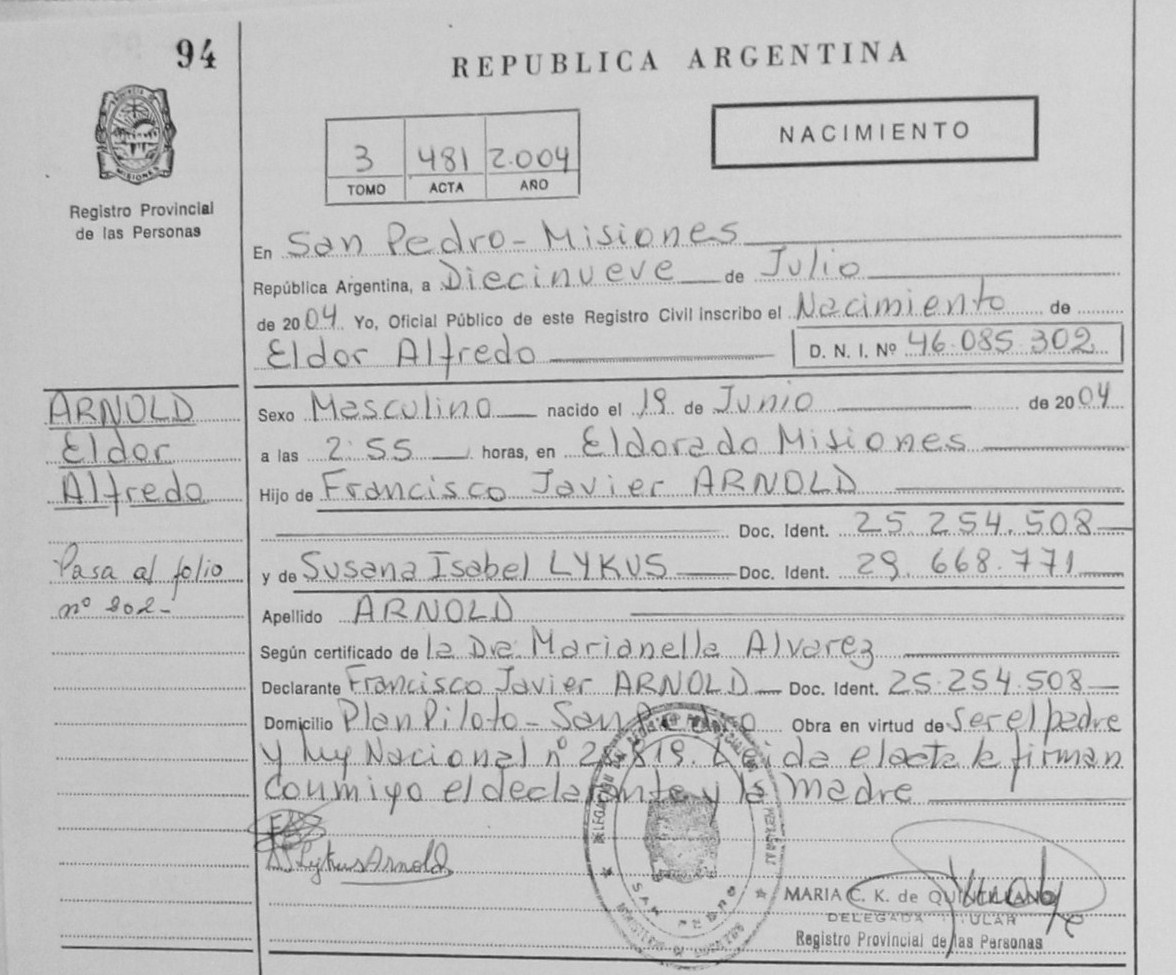 94
REPUBLICA ARGENTINA
NACIMIENTO
3 481 2.004
TOMO ACTA AÑO
MISIONES
Registro Provincial
de las Personas
En San Pedro - Misiones
República Argentina, a Diecinueve de Julio
de 2004 Yo, Oficial Público de este Registro Civil inscribo el Nacimiento de
Eldor Alfredo D. N. I. Nº 46.085.302
ARNOLD
Eldor
Alfredo
Pasa al folio
nº 202-
Sexo Masculino nacido el 19 de Junio de 2004
a las 2:55 horas, en Eldorado Misiones
Hijo de Francisco Javier ARNOLD
Doc. Ident. 25.254.508
y de Susana Isabel LYKUS Doc. Ident. 29.668.771
Apellido ARNOLD
Según certificado de la Dra. Marianella Alvarez
Declarante Francisco Javier ARNOLD Doc. Ident. 25.254.508
Domicilio Plan Piloto - San Pedro Obra en virtud de Ser el padre
y ley Nacional nº Leida el acta la firman
conmigo el declarante y la Madre
Lykus Arnold
SAN PEDRO
MARIA C. K. de
DELEGADA TITULAR
Registro Provincial de las Personas